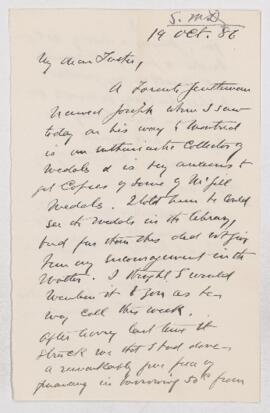 S. McD
19 Oct. 86
My dear Foster,
A Toronto gentleman
named Joseph whom I saw
today on his way to Montreal
is an enthusiastic Collector of
Medals & is very anxious to
get Copies of some of McGill
Medals. I told him he could
see the Medals in the library,
but further than this did not give
him any encouragement in the
matter. I thought I would
mention it to you as he
may call this week.
After having sent this it
struck me that I had done
a remarkably fine piece of
in borrowing 50¢ from